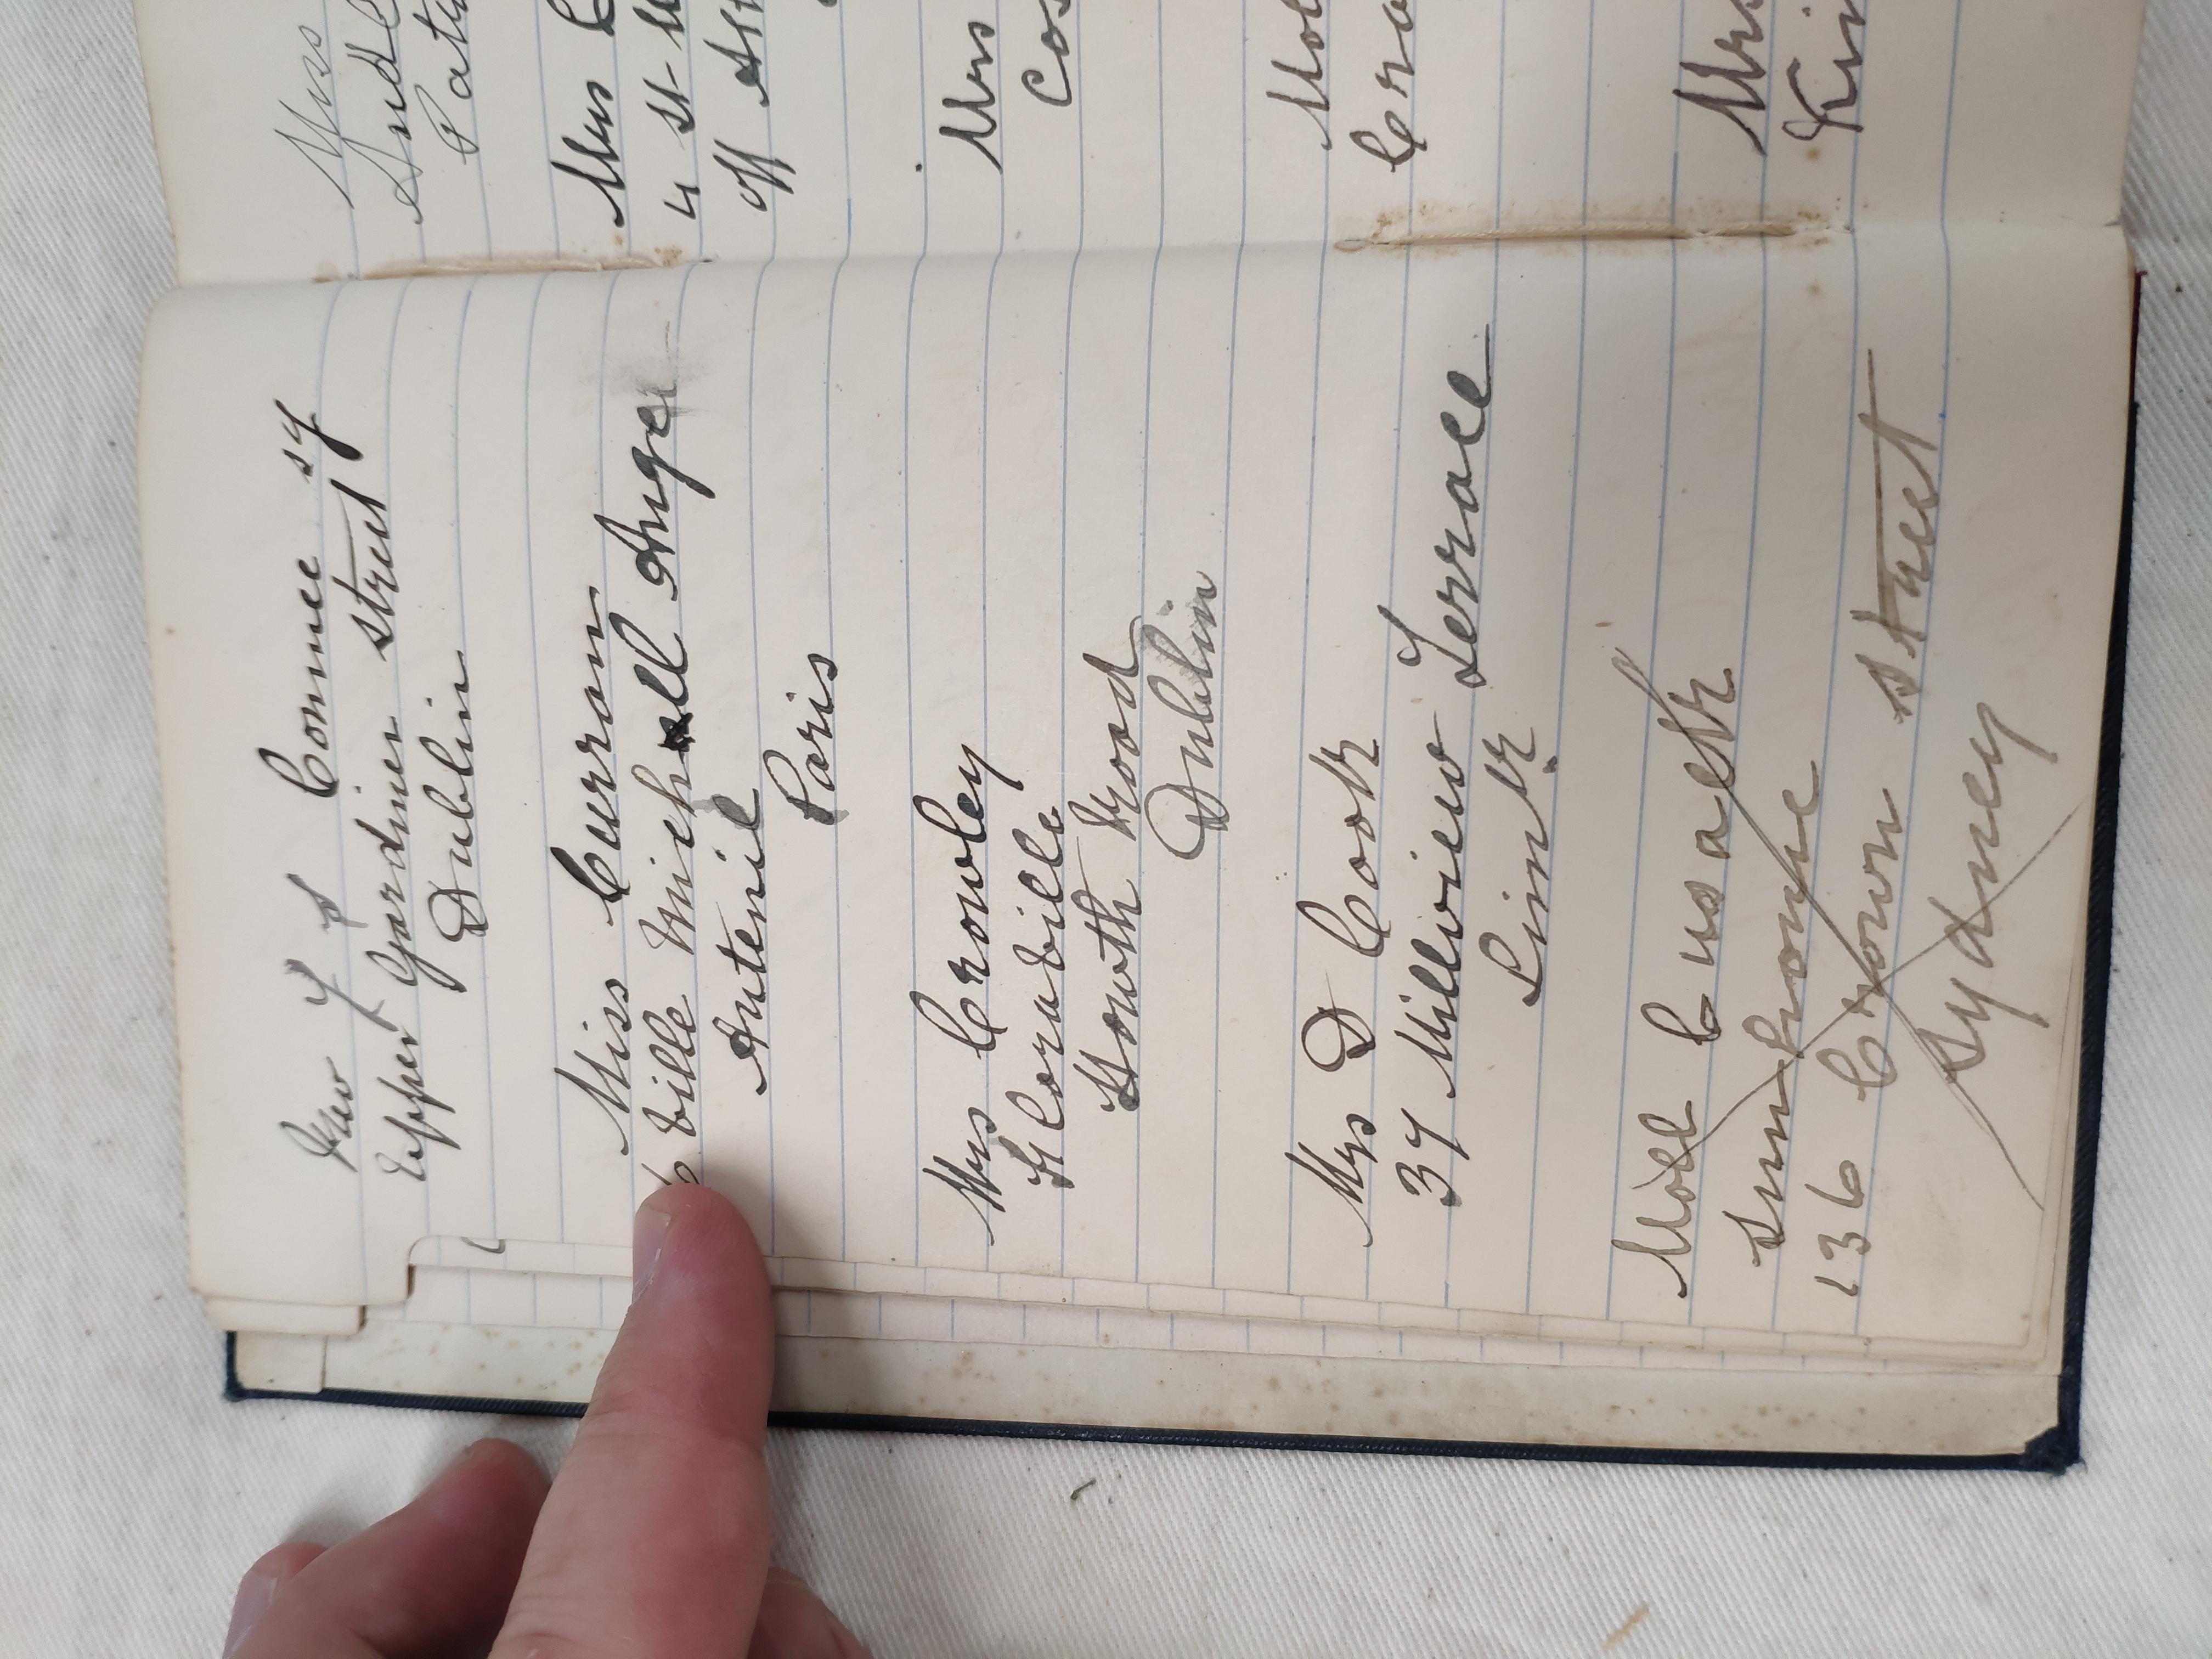 Rev J S Connee SJ
Upper Gardiner Street
Dublin
Miss Curran
6 Ville Michell Ange
Auteuil
Paris
Mrs Crowley
Floraville
Howth Road
Dublin
Mrs D Cook
37 Millview Terrace
Limk
Moll Cusack
136 Crown Street
Sydney
Miss
Mrs
Cos
Moll
Mrs